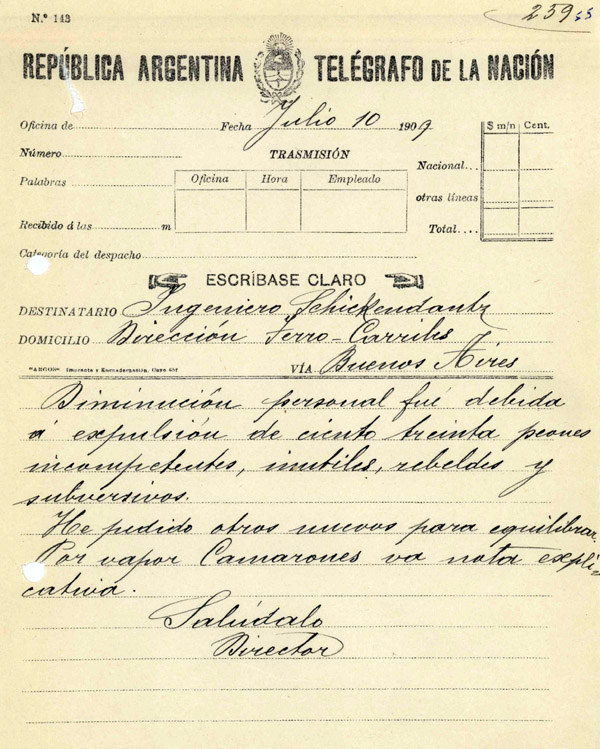 N.º 143
259 55
REPÚBLICA ARGENTINA TELÉGRAFO DE LA NACIÓN
Oficina de Fecha Julio 10 1909
$ m/n Cent.
Número TRASMISIÓN
Nacional...
Palabras Oficina Hora Empleado
otras líneas
Recibido á las m
Total....
Categoría del despacho
ESCRÍBASE CLARO
DESTINATARIO Ingeniero Schickendantz
DOMICILIO Dirección Ferro-Carriles
"ARGOS" Imprenta y Encuadernación, Cuyo 657 VÍA Buenos Aires
Diminución personal fué debida
á expulsión de ciento treinta peones
incompetentes, inutiles, rebeldes y
subversivos.
He pedido otros nuevos para equilibrar.
Por vapor Camarones va nota expli-
cativa.
Salúdalo
Director